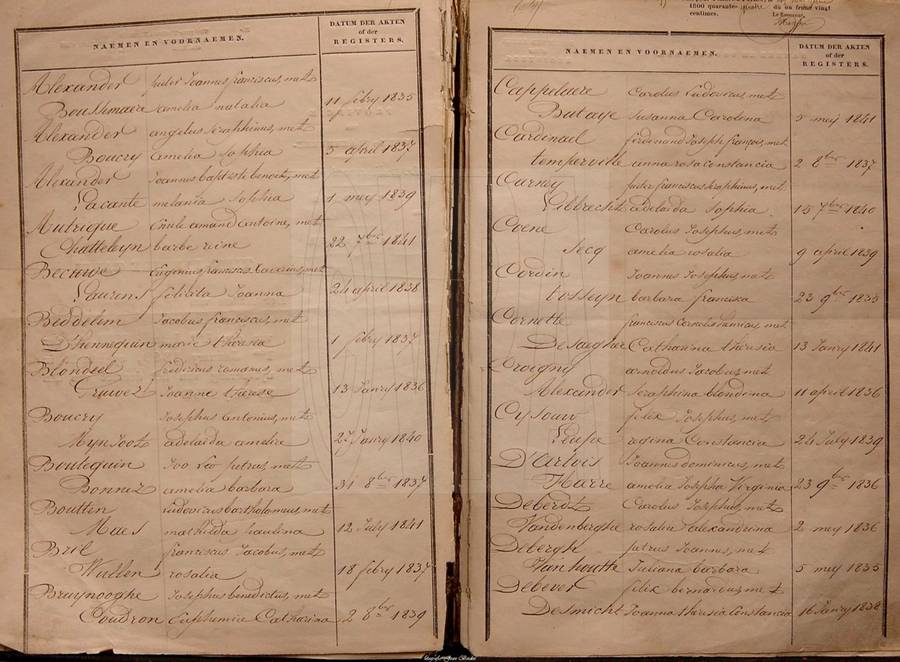 NAEMEN EN VOORNAEMEN. DATUM DER AKTEN
of der
REGISTERS.
Alexander pieter Joannes franciscus, met
Bouthmaere amelia natalia 11 febry 1835
Alexander angelus seraphinus, met
Boucry amelia sophia 5 april 1837
Alexander Joannes baptiste benoit, met
Lacante melania sophia 1 mey 1839
Autrique Emile amand antoine, met
Chatteleyn barbe reine 22 7bre 1841
Becuwe Eugenius franciscus Xaverius, met
Laurens felicita Joanna 24 april 1838
Beddelem Jacobus franciscus, met
D'hennequin marie theresia 1 febry 1837
Blondeel fredericus romanus, met
Gruwez Joanne therese 13 Janry 1836
Boucry Josephus antonius, met
Mynsoot adelaida amelia 27 Janry 1840
Boulequin Ivo Leo petrus, met
Bonnez amelia barbara 31 8bre 1837
Boutten Ludovicus bartholomeus, met
Maes mathilda paulina 12 July 1841
Bril franciscus Jacobus, met
Wullen rosalia 18 febry 1837
Bruynooghe Josephus benedictus, met
Coudron Euphemia Catharina 2 8bre 1839
1800 quarante-quatre du ou franc vingt
centimes. Le Receveur,
NAEMEN EN VOORNAEMEN. DATUM DER AKTEN
of der
REGISTERS.
Cappelaere Carolus Ludovicus, met
Butaye susanna Carolina 5 mey 1841
Cardinael ferdinand Joseph françois, met
temperville anna rosa Constancia 2 8bre 1837
Carney pieter franciscus seraphinus, met
Elbrecht adelaida sophia 15 7bre 1840
Coene Carolus Josephus, met
Secq amelia rosalia 9 april 1839
Cordin Joannes Josephus, met
Cosseyn barbara francisca 23 9bre 1835
Cornette franciscus Cornelis henricus, met
DeJaeghere Catharina theresia 13 Janry 1841
Croigny arnoldus Jacobus, met
Alexander seraphina blondena 11 april 1836
Cysouw felix Josephus, met
Leupe regina Constancia 24 July 1839
D'Artois Joannes dominicus, met
Haere amelia Josepha Virginia 23 9bre 1836
Deberdt Carolus Josephus, met
Vandenberghe rosalie alexandrina 2 mey 1836
Debergh petrus Joannes, met
Vanhoutte Juliana barbara 5 mey 1835
Debever felix bernardus, met
Desmicht Joanna theresia Constancia 16 Janry 1838